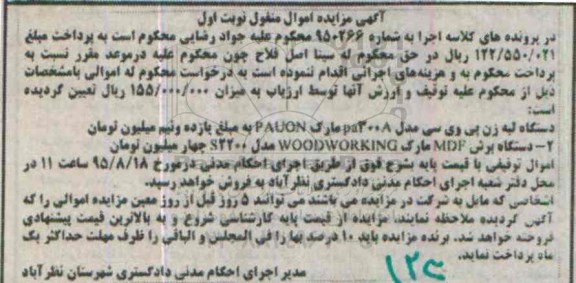 آگهی مزایده اموال منقول نوبت اول
در پرونده های کلاسه اجرا به شماره ۹۵۰۲۶۶ محکوم علیه جواد رضایی محکوم است به پرداخت مبلغ
۱۲۲/۵۵۰/۰۲۱ ریال در حق محکوم له سینا اصل فلاح چون محکوم علیه درموعد مقرر نسبت به
پرداخت محکوم به و هزینه‌های اجرائی اقدام ننموده است به درخواست محکوم له اموالی بامشخصات
ذیل از محکوم علیه توقیف و ارزش آنها توسط ارزیاب به میزان ۱۵۵/۰۰۰/۰۰۰ ریال تعیین گردیده
است:
دستگاه لبه زن پی وی سی مدل pa۳۰۰A مارک PAUON به مبلغ یازده ونیم میلیون تومان
۲– دستگاه برش MDF مارک WOODWORKING مدل s۳۲۰۰ چهار میلیون تومان
اموال توقیفی با قیمت پایه بشرح فوق از طریق اجرای احکام مدنی درمورخ ۹۵/۸/۱۸ ساعت ۱۱ در
محل دفتر شعبه اجرای احکام مدنی دادگستری نظرآباد به فروش خواهد رسید.
اشخاصی که مایل به شرکت در مزایده می باشند می توانند ۵ روز قبل از روز معین مزایده اموالی را که
آگهی گردیده ملاحظه نمایند. مزایده از قیمت پایه کارشناسی شروع و به بالاترین قیمت پیشنهادی
فروخته خواهد شد. برنده مزایده باید ۱۰ درصد بها را فی المجلس و الباقی را ظرف مهلت حداکثر یک
ماه پرداخت نماید.
مدیر اجرای احکام مدنی دادگستری شهرستان نظرآباد